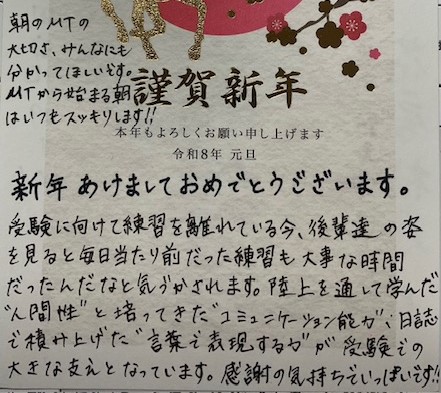 朝のMTの
大切さ、みんなにも
分かってほしいです。
MTから始まる朝
はいつもスッキリします!!
謹賀新年
本年もよろしくお願い申し上げます
令和8年 元旦
新年 あけましておめでとうございます。
受験に向けて練習を離れている今、後輩達の姿
を見ると毎日当たり前だった練習も大事な時間
だったんだなと気づかされます。陸上を通して学んだ
“人間性”と培ってきた“コミュニケーション能力”、日誌
で積み上げた“言葉で表現する力”が受験での
大きな支えとなっています。感謝の気持ちでいっぱいです!!